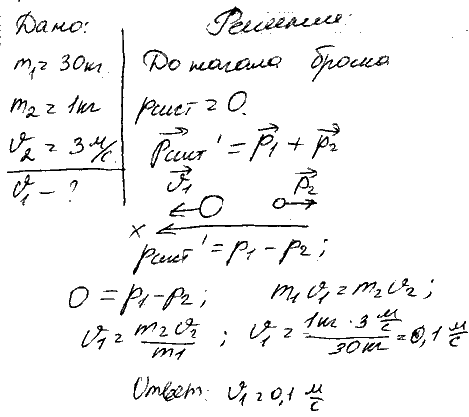 Дано:
m₁ = 30кг
m₂ = 1кг
v₂ = 3 м/с
v₁ - ?
Решение:
До начала броска
pсист = 0.
p⃗сист' = p⃗₁ + p⃗₂
v⃗₁ p⃗₂
x
pсист' = p₁ - p₂;
0 = p₁ - p₂; m₁v₁ = m₂v₂;
v₁ = m₂v₂/m₁; v₁ = 1кг · 3 м/с / 30кг = 0,1 м/с
Ответ: v₁ = 0,1 м/с